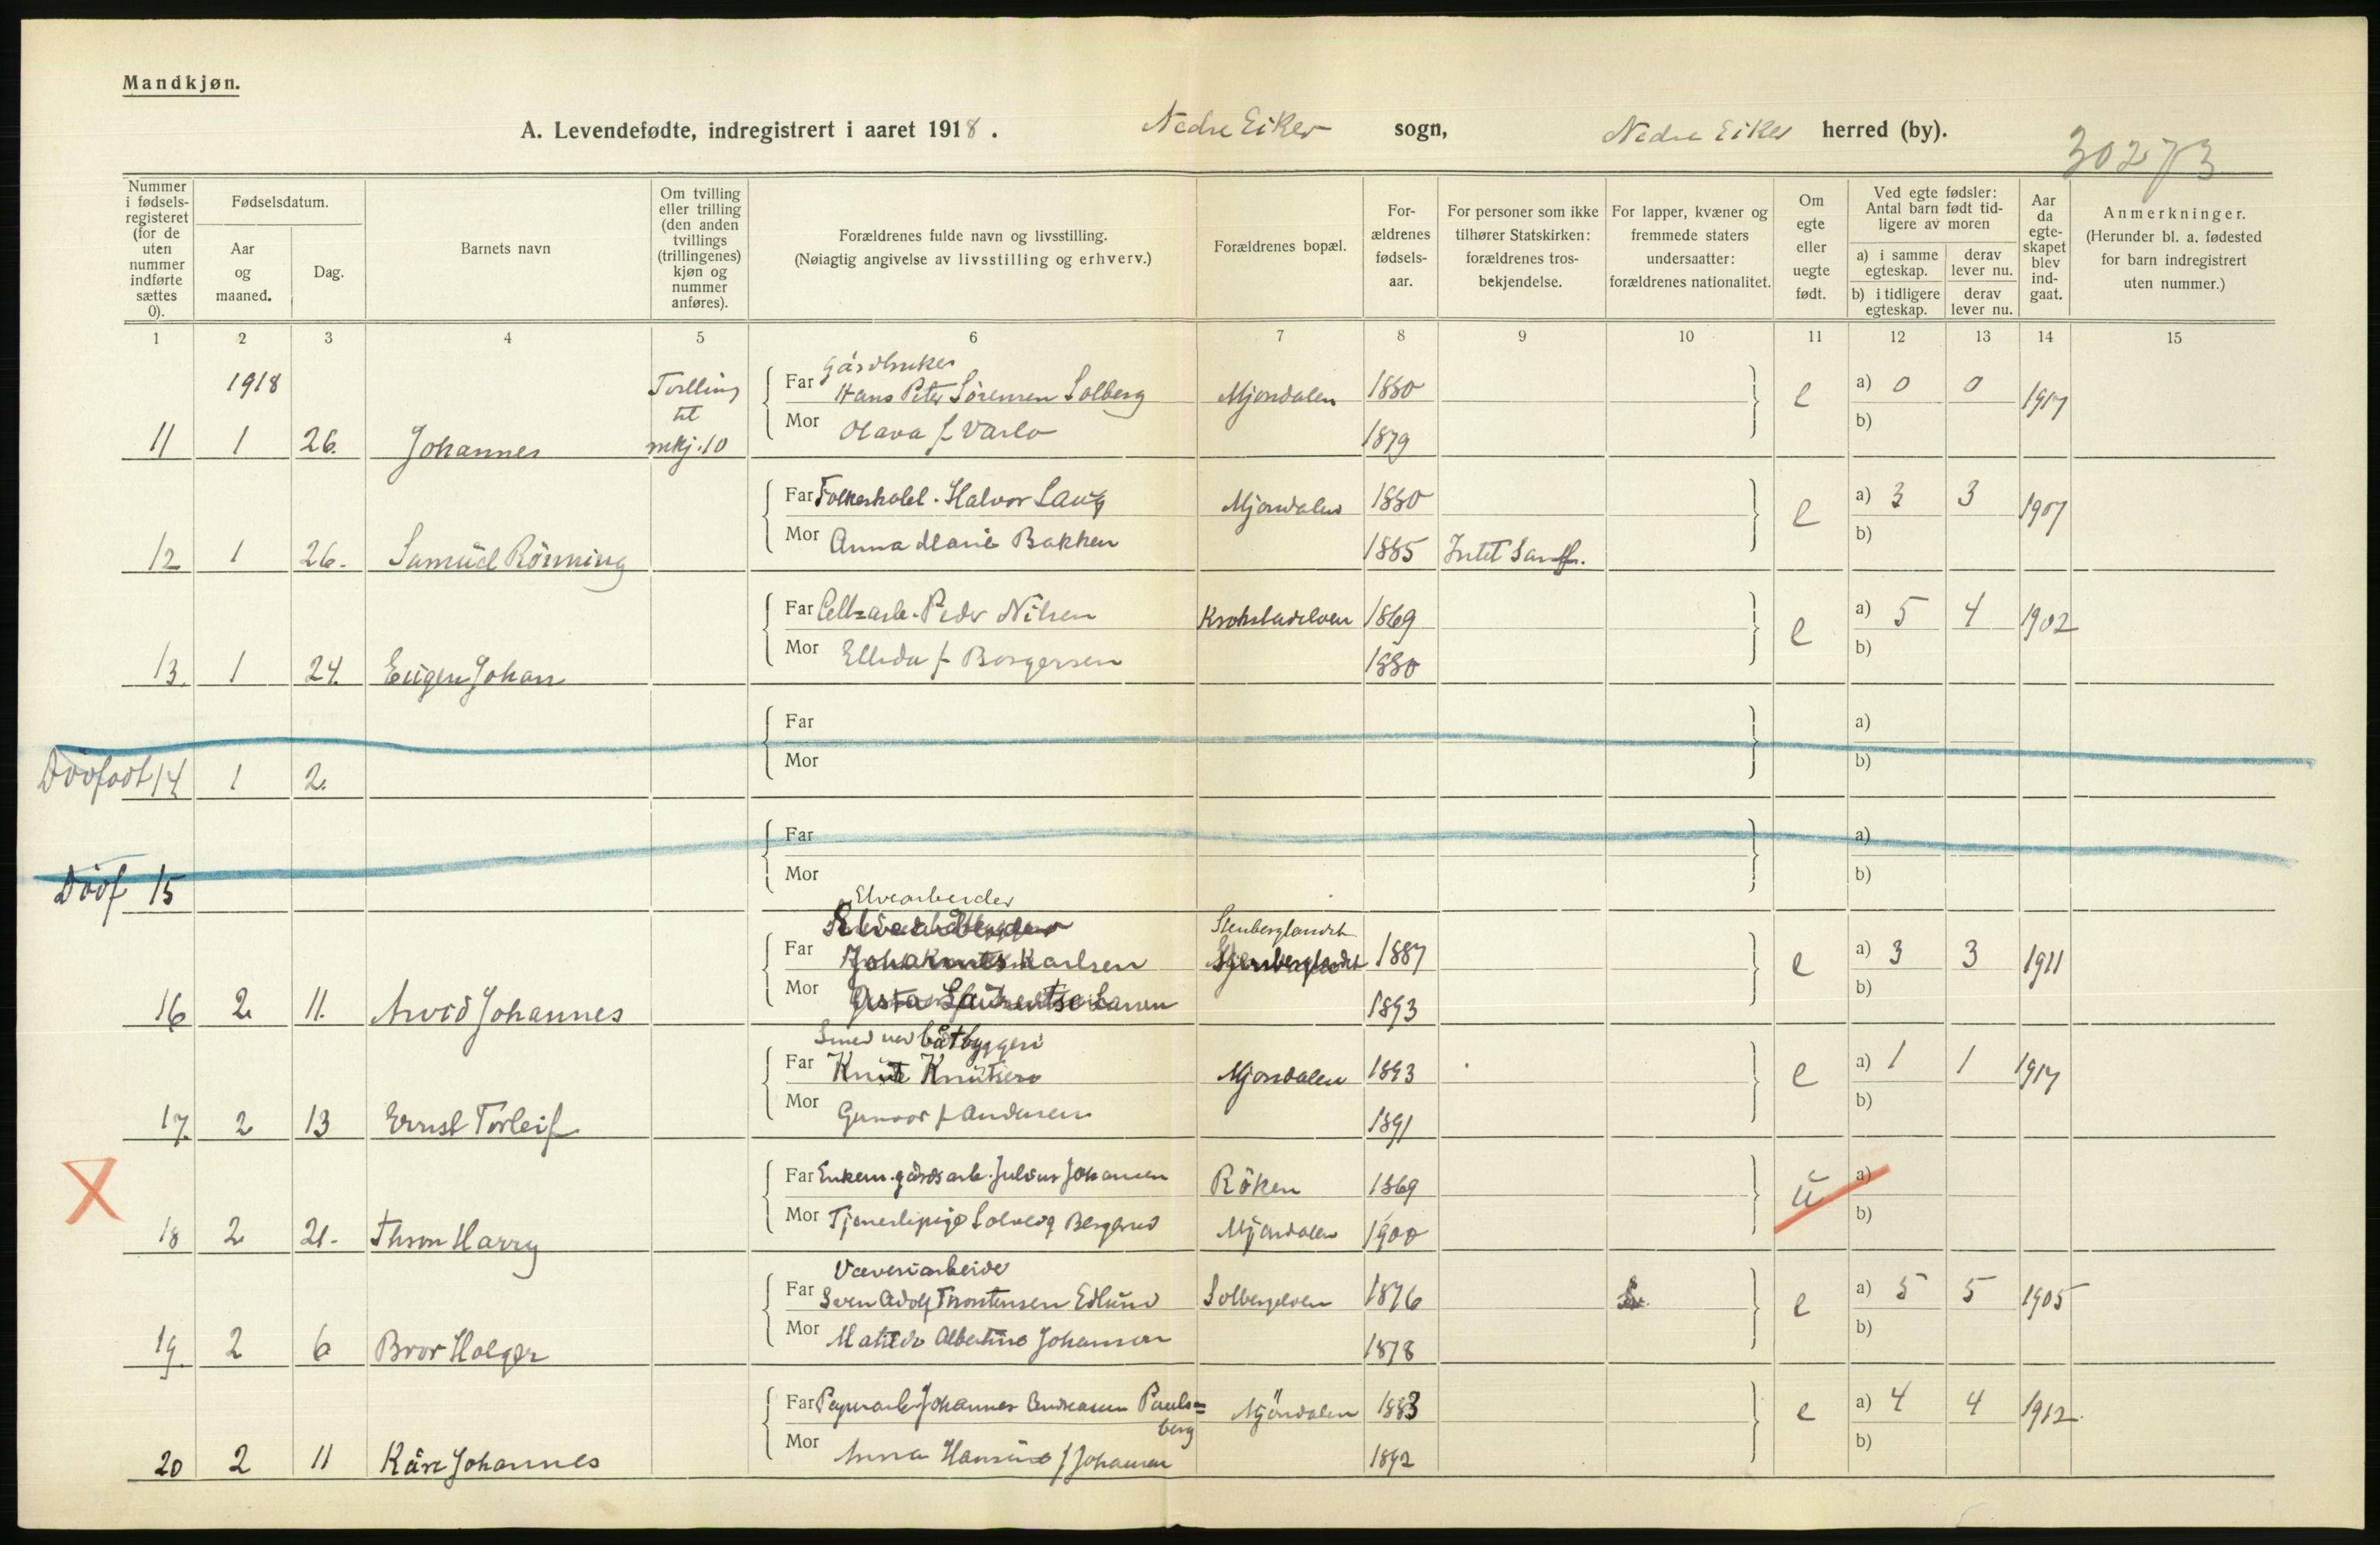 Mandkjøn.
A. Levendefødte, indregistrert i aaret 1918. Nedre Eiker sogn, Nedre Eiker herred (by).
30273
Nummer i fødsels-registeret (for de uten nummer indførte sættes 0).
Fødselsdatum.
Aar og maaned.
Dag.
Barnets navn
Om tvilling eller trilling (den anden tvillings (trillingenes) kjøn og nummer anføres).
Forældrenes fulde navn og livsstilling.
(Nøiagtig angivelse av livsstilling og erhverv.)
Forældrenes bopæl.
For-ældrenes fødsels-aar.
For personer som ikke tilhører Statskirken: forældrenes tros-bekjendelse.
For lapper, kvæner og fremmede staters undersaatter: forældrenes nationalitet.
Om egte eller uegte født.
Ved egte fødsler: Antal barn født tid-ligere av moren
a) i samme egteskap.
derav lever nu.
b) i tidligere egteskap.
derav lever nu.
Aar da egte-skapet blev ind-gaat.
Anmerkninger.
(Herunder bl. a. fødested for barn indregistrert uten nummer.)
1 2 3 4 5 6 7 8 9 10 11 12 13 14 15
1918 Tvilling til mkj. 10
Gårdbruker
Far Hans Peter Sörensen Solberg Mjöndalen 1880 e a) 0 0 1917
Mor Olava f. Varlo 1879 b)
11 1 26. Johannes
Far Folkeskolel. Halvor Laug Mjöndalen 1880 e a) 3 3 1907
Mor Anna Marie Bakken 1885 Intet Samf. b)
12 1 26. Samuel Rönning
Far Cell=arb. Peder Nilsen Krokstadelven 1869 e a) 5 4 1902
Mor Ellida f. Borgersen 1880 b)
13. 1 24. Eugen Johan
Far a)
Mor b)
Dödfödt 14 1 2.
Far a)
Mor b)
Dödf 15
Elvearbeider
Stenberglandet
Far Karlsen 1887 e a) 3 3 1911
Mor Larsen 1893 b)
16 2 11. Arvid Johannes
Smed ved båtbyggeri
Far Knut Knutsen Mjöndalen 1893 e a) 1 1 1917
Mor Gunvor f. Andersen 1891 b)
17. 2 13 Ernst Torleif
X
Far Enkem. gårdsarb. Julius Johansen Röken 1869 u a)
Mor Tjenestepige Solveig Mjöndalen 1900 b)
18 2 21. Thron Harry
Væveriarbeider
Far Sven Adolf Thorstensen Edlund Solbergelven 1876 e a) 5 5 1905
Mor Matilde Albertine Johansson 1878 b)
19. 2 6 Bror Holger
Far Papirarb. Johannes Andreasen Pauls=berg Mjöndalen 1883 e a) 4 4 1912
Mor Anna Hansine f. Johansen 1892 b)
20 2 11 Kåre Johannes